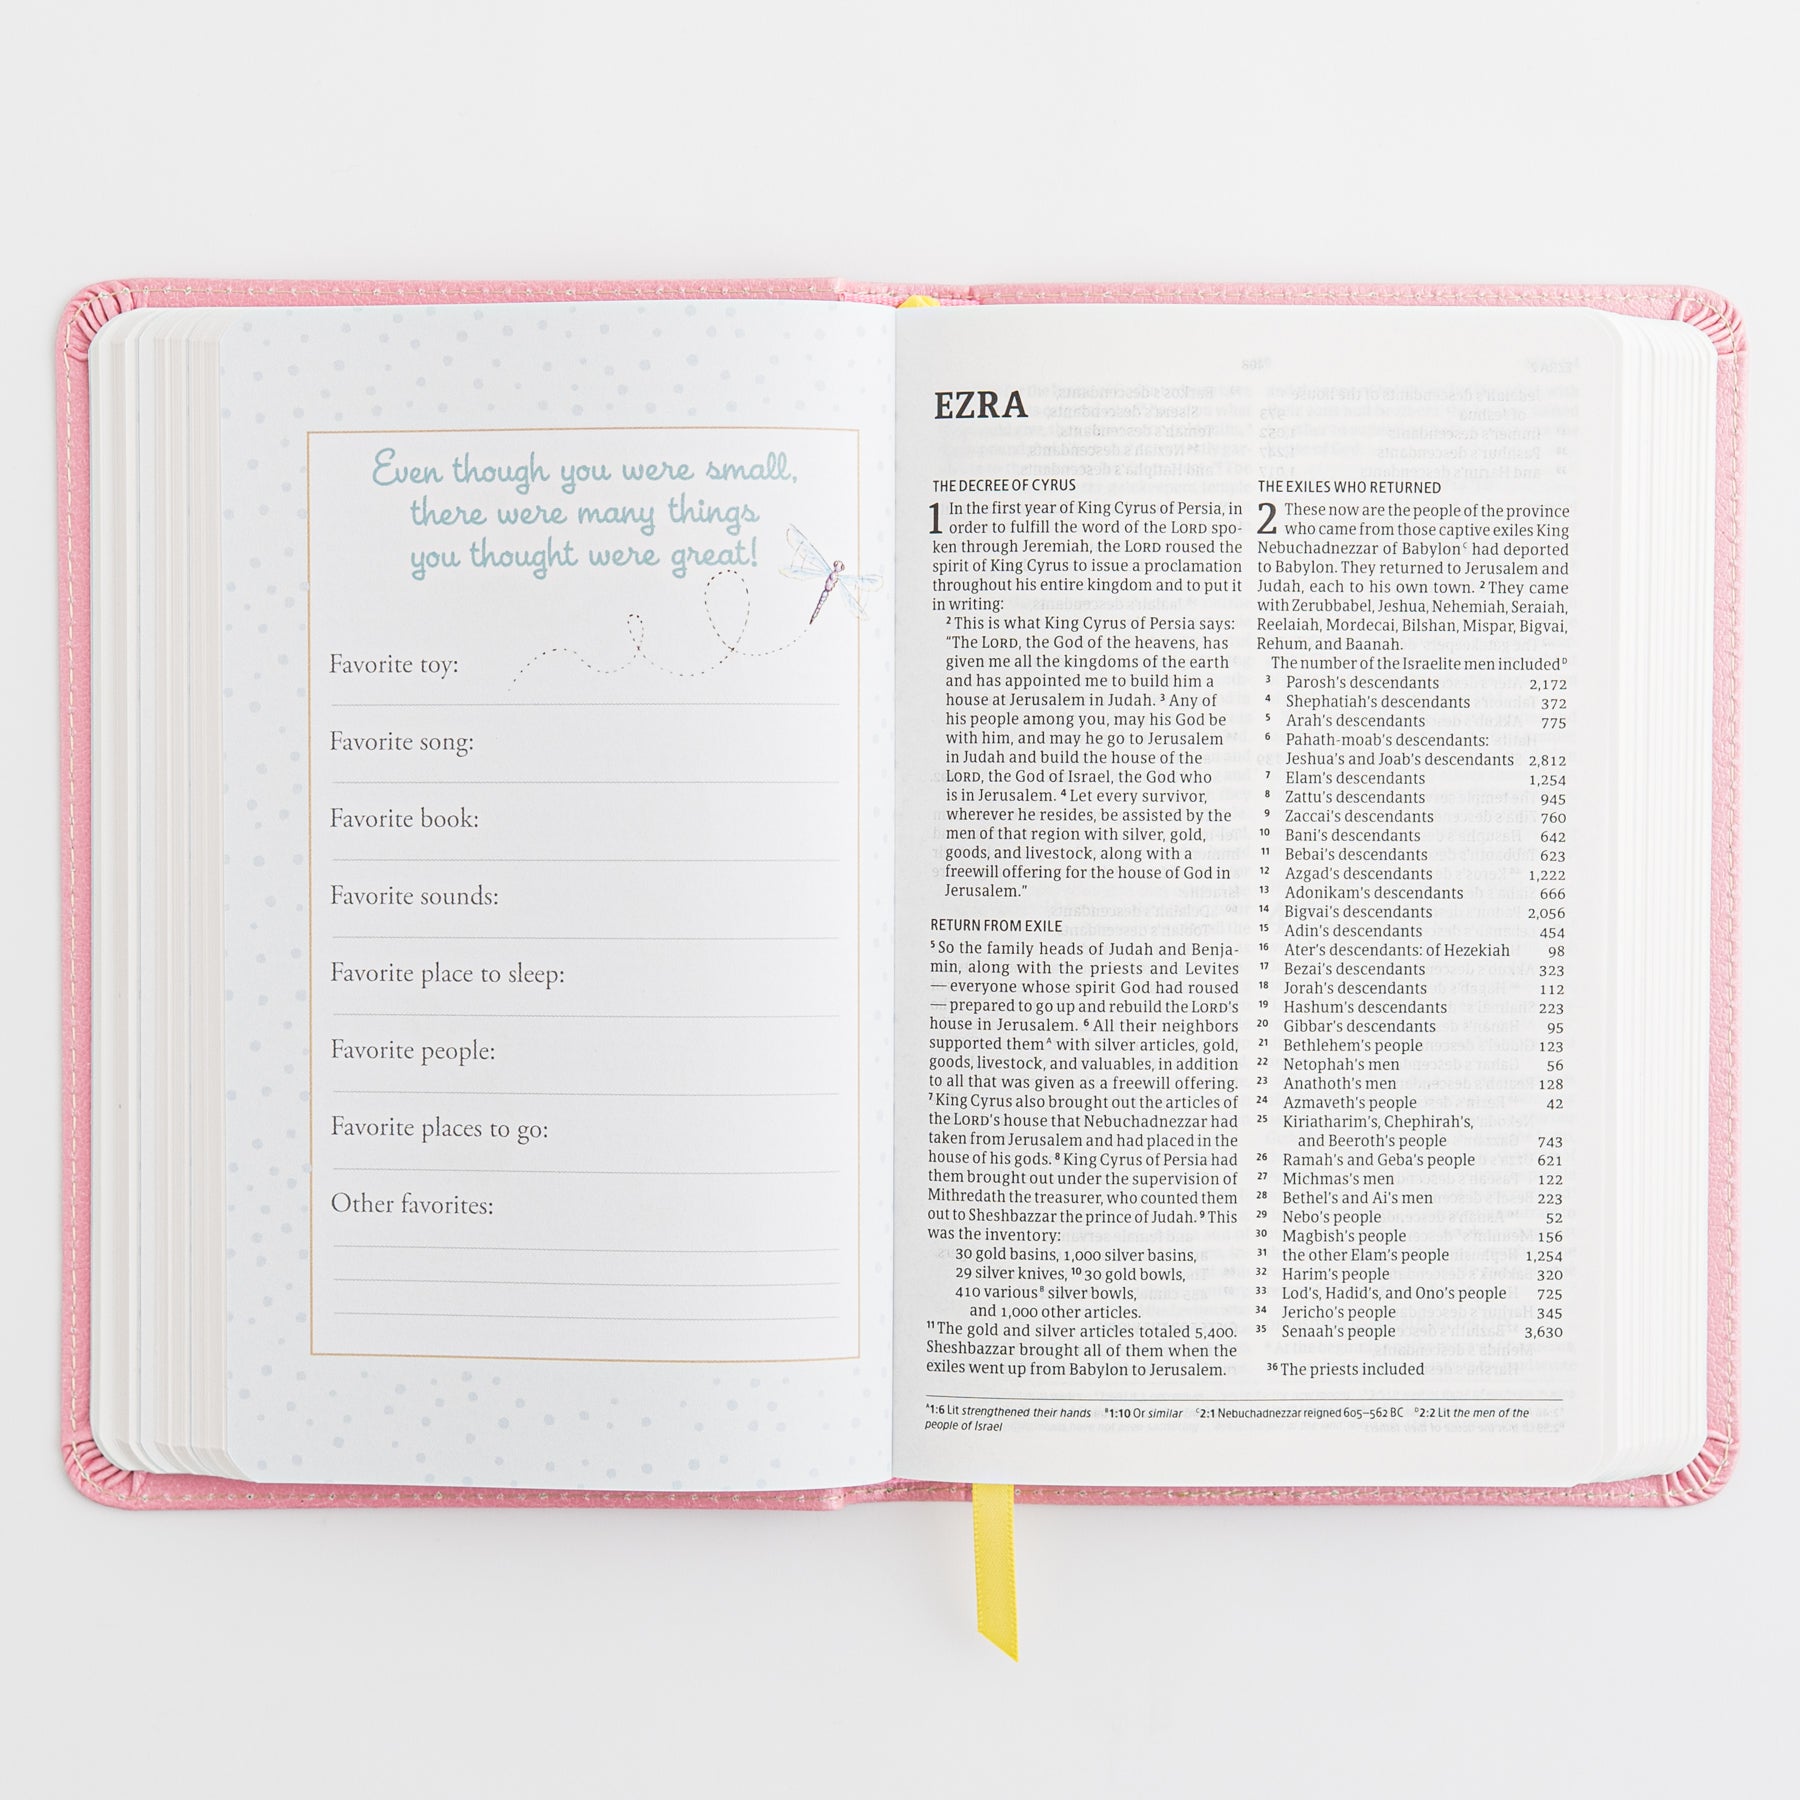 Even though you were small,
there were many things
you thought were great!
Favorite toy:
Favorite song:
Favorite book:
Favorite sounds:
Favorite place to sleep:
Favorite people:
Favorite places to go:
Other favorites:
EZRA
THE DECREE OF CYRUS
1 In the first year of King Cyrus of Persia, in
order to fulfill the word of the LORD spo-
ken through Jeremiah, the LORD roused the
spirit of King Cyrus to issue a proclamation
throughout his entire kingdom and to put it
in writing:
2 This is what King Cyrus of Persia says:
“The LORD, the God of the heavens, has
given me all the kingdoms of the earth
and has appointed me to build him a
house at Jerusalem in Judah. 3 Any of
his people among you, may his God be
with him, and may he go to Jerusalem
in Judah and build the house of the
LORD, the God of Israel, the God who
is in Jerusalem. 4 Let every survivor,
wherever he resides, be assisted by the
men of that region with silver, gold,
goods, and livestock, along with a
freewill offering for the house of God in
Jerusalem.”
RETURN FROM EXILE
5 So the family heads of Judah and Benja-
min, along with the priests and Levites
— everyone whose spirit God had roused
— prepared to go up and rebuild the LORD’s
house in Jerusalem. 6 All their neighbors
supported them A with silver articles, gold,
goods, livestock, and valuables, in addition
to all that was given as a freewill offering.
7 King Cyrus also brought out the articles of
the LORD’s house that Nebuchadnezzar had
taken from Jerusalem and had placed in the
house of his gods. 8 King Cyrus of Persia had
them brought out under the supervision of
Mithredath the treasurer, who counted them
out to Sheshbazzar the prince of Judah. 9 This
was the inventory:
30 gold basins, 1,000 silver basins,
29 silver knives, 10 30 gold bowls,
410 various B silver bowls,
and 1,000 other articles.
11 The gold and silver articles totaled 5,400.
Sheshbazzar brought all of them when the
exiles went up from Babylon to Jerusalem.
THE EXILES WHO RETURNED
2 These now are the people of the province
who came from those captive exiles King
Nebuchadnezzar of Babylon C had deported
to Babylon. They returned to Jerusalem and
Judah, each to his own town. 2 They came
with Zerubbabel, Jeshua, Nehemiah, Seraiah,
Reelaiah, Mordecai, Bilshan, Mispar, Bigvai,
Rehum, and Baanah.
The number of the Israelite men included D
3 Parosh’s descendants 2,172
4 Shephatiah’s descendants 372
5 Arah’s descendants 775
6 Pahath-moab’s descendants:
Jeshua’s and Joab’s descendants 2,812
7 Elam’s descendants 1,254
8 Zattu’s descendants 945
9 Zaccai’s descendants 760
10 Bani’s descendants 642
11 Bebai’s descendants 623
12 Azgad’s descendants 1,222
13 Adonikam’s descendants 666
14 Bigvai’s descendants 2,056
15 Adin’s descendants 454
16 Ater’s descendants: of Hezekiah 98
17 Bezai’s descendants 323
18 Jorah’s descendants 112
19 Hashum’s descendants 223
20 Gibbar’s descendants 95
21 Bethlehem’s people 123
22 Netophah’s men 56
23 Anathoth’s men 128
24 Azmaveth’s people 42
25 Kiriatharim’s, Chephirah’s,
and Beeroth’s people 743
26 Ramah’s and Geba’s people 621
27 Michmas’s men 122
28 Bethel’s and Ai’s men 223
29 Nebo’s people 52
30 Magbish’s people 156
31 the other Elam’s people 1,254
32 Harim’s people 320
33 Lod’s, Hadid’s, and Ono’s people 725
34 Jericho’s people 345
35 Senaah’s people 3,630
36 The priests included
A 1:6 Lit strengthened their hands B 1:10 Or similar C 2:1 Nebuchadnezzar reigned 605–562 BC D 2:2 Lit the men of the
people of Israel